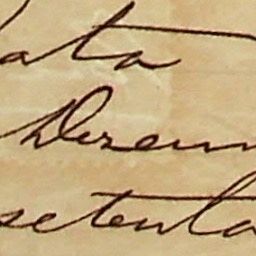 ata
Dezem
setenta